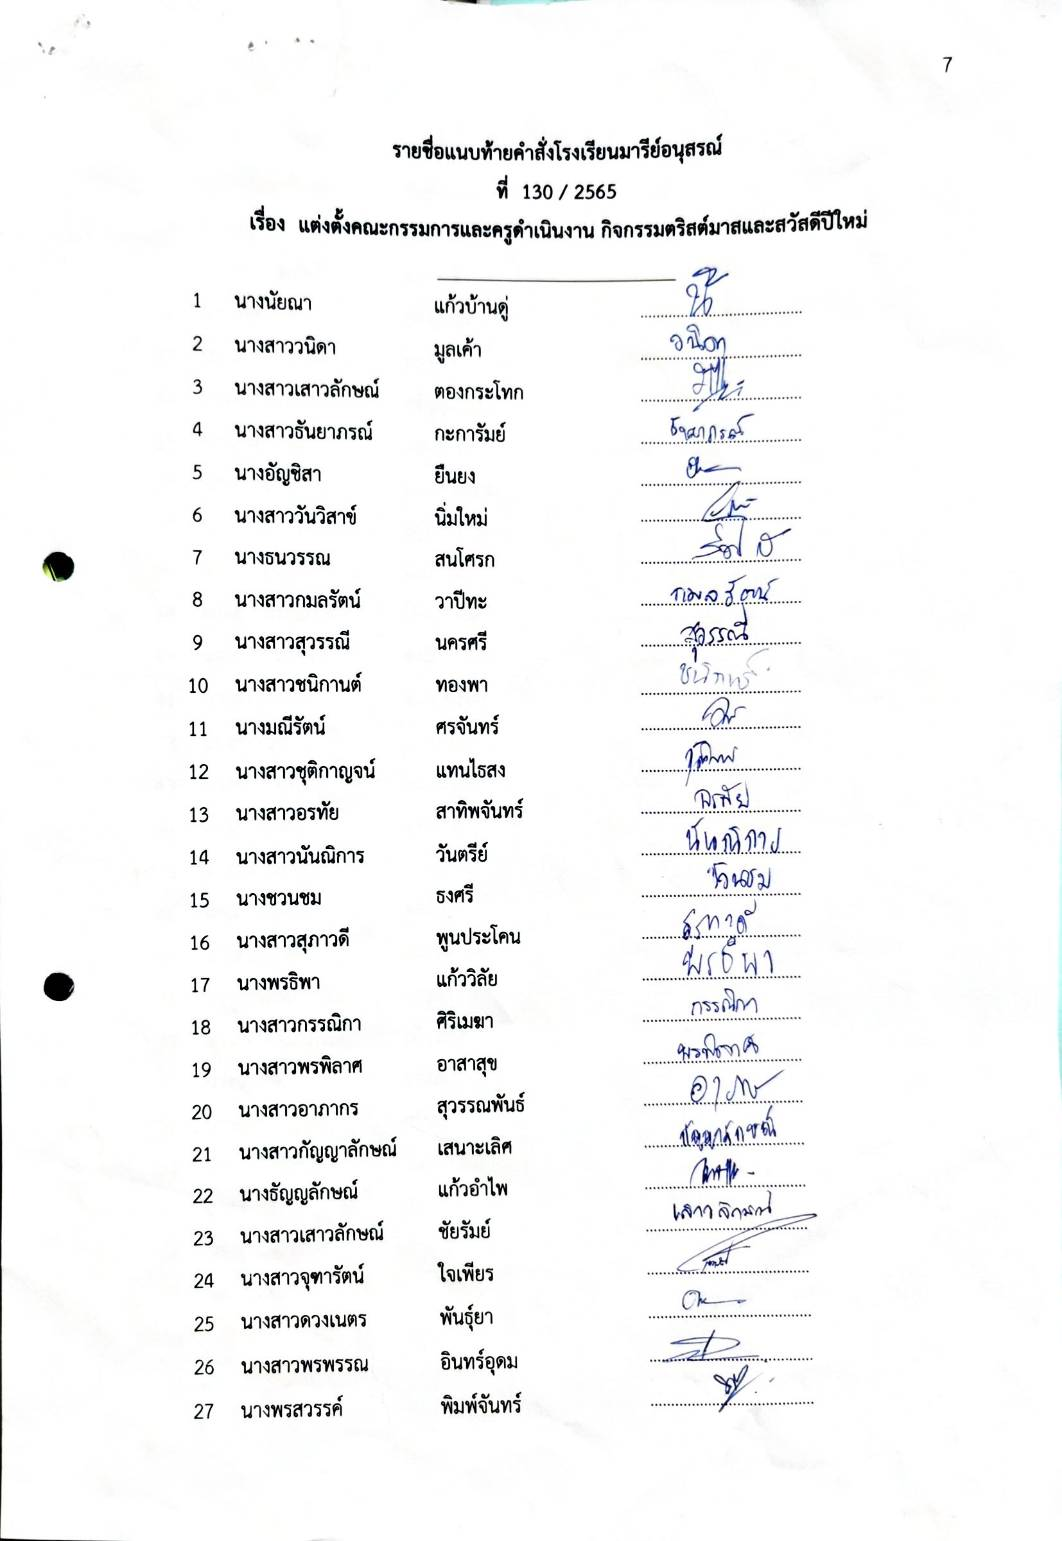 7
รายชื่อแนบท้ายคำสั่งโรงเรียนมารีย์อนุสรณ์
ที่ 130 / 2565
เรื่อง แต่งตั้งคณะกรรมการและครูดำเนินงาน กิจกรรมตริสต์มาสและสวัสดีปีใหม่
1 นางนัยณา แก้วบ้านดู่
2 นางสาววนิดา มูลเค้า วนิดา
3 นางสาวเสาวลักษณ์ ตองกระโทก
4 นางสาวธันยาภรณ์ กะการัมย์ ธันยาภรณ์
5 นางอัญชิสา ยืนยง
6 นางสาววันวิสาข์ นิ่มใหม่
7 นางธนวรรณ สนโศรก
8 นางสาวกมลรัตน์ วาปีทะ กมลรัตน์
9 นางสาวสุวรรณี นครศรี สุวรรณี
10 นางสาวชนิกานต์ ทองพา ชนิกานต์
11 นางมณีรัตน์ ศรจันทร์
12 นางสาวชุติกาญจน์ แทนไธสง
13 นางสาวอรทัย สาทิพจันทร์ อรทัย
14 นางสาวนันณิการ วันตรีย์ นันณิการ
15 นางชวนชม ธงศรี ชวนชม
16 นางสาวสุภาวดี พูนประโคน สุภาวดี
17 นางพรธิพา แก้ววิลัย พรธิพา
18 นางสาวกรรณิกา ศิริเมฆา กรรณิกา
19 นางสาวพรพิลาศ อาสาสุข พรพิลาศ
20 นางสาวอาภากร สุวรรณพันธ์
21 นางสาวกัญญาลักษณ์ เสนาะเลิศ กัญญาลักษณ์
22 นางธัญญลักษณ์ แก้วอำไพ
23 นางสาวเสาวลักษณ์ ชัยรัมย์ เสาวลักษณ์
24 นางสาวจุฑารัตน์ ใจเพียร
25 นางสาวดวงเนตร พันธุ์ยา
26 นางสาวพรพรรณ อินทร์อุดม
27 นางพรสวรรค์ พิมพ์จันทร์